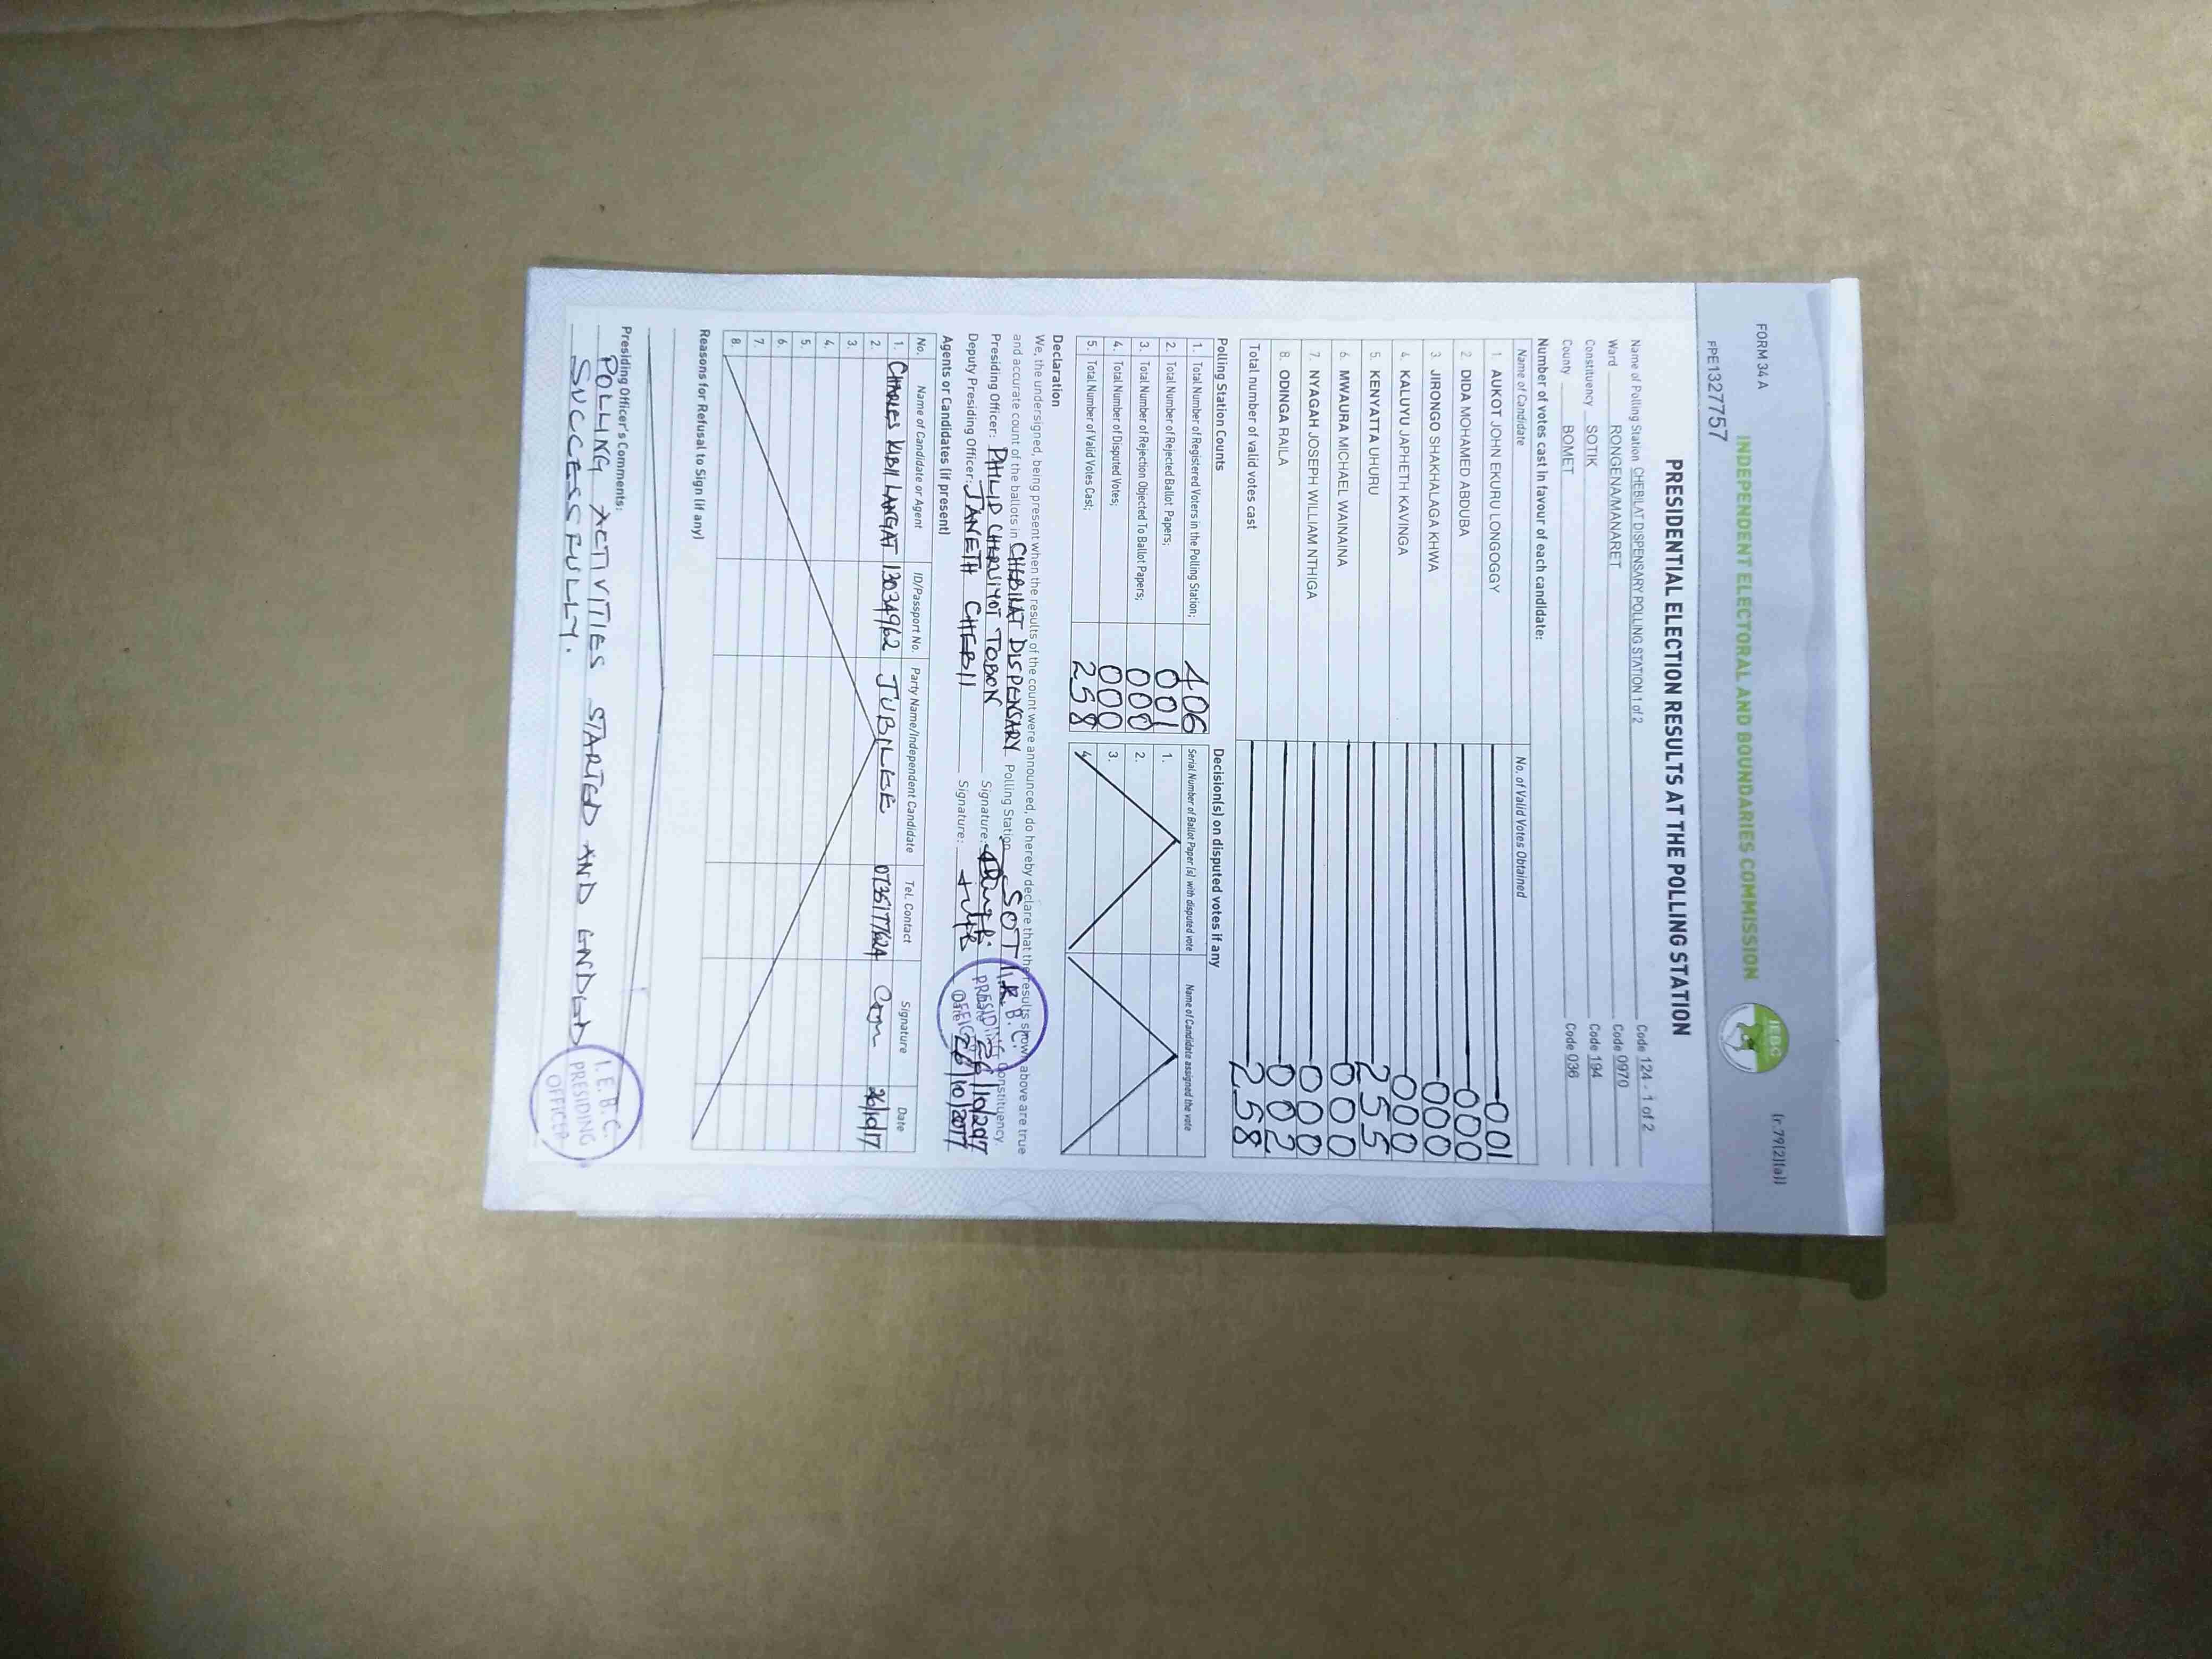 FORM 34 A
(r.79(2)(a))
INDEPENDENT ELECTORAL AND BOUNDARIES COMMISSION
IEBC
FPE1327757
PRESIDENTIAL ELECTION RESULTS AT THE POLLING STATION
Name of Polling Station CHEBILAT DISPENSARY POLLING STATION 1 of 2 Code 124 - 1 of 2
Ward RONGENA/MANARET Code 0970
Constituency SOTIK Code 194
County BOMET Code 036
Number of votes cast in favour of each candidate:
Name of Candidate No. of Valid Votes Obtained
1. AUKOT JOHN EKURU LONGOGGY 001
2. DIDA MOHAMED ABDUBA 000
3. JIRONGO SHAKHALAGA KHWA 000
4. KALUYU JAPHETH KAVINGA 000
5. KENYATTA UHURU 255
6. MWAURA MICHAEL WAINAINA 000
7. NYAGAH JOSEPH WILLIAM NTHIGA 000
8. ODINGA RAILA 002
Total number of valid votes cast 258
Polling Station Counts
1. Total Number of Registered Voters in the Polling Station; 406
2. Total Number of Rejected Ballot Papers; 001
3. Total Number of Rejection Objected To Ballot Papers; 000
4. Total Number of Disputed Votes; 000
5. Total Number of Valid Votes Cast; 258
Decision(s) on disputed votes if any
Serial Number of Ballot Paper (s) with disputed vote Name of Candidate assigned the vote
1.
2.
3.
4.
Declaration
We, the undersigned, being present when the results of the count were announced, do hereby declare that the results shown above are true
and accurate count of the ballots in CHEBILAT DISPENSARY Polling Station SOTIK Constituency.
Presiding Officer: PHILIP CHERUIYOT TOBON Signature: 26/10/2017
Deputy Presiding Officer: JANETH CHEBII Signature: Date 26/10/2017
I.E.B.C.
PRESIDING
OFFICER
Agents or Candidates (if present)
No. Name of Candidate or Agent ID/Passport No. Party Name/Independent Candidate Tel. Contact Signature Date
1. CHARLES KIBII LANGAT 13034962 JUBILEE 0735177624 26/10/17
2.
3.
4.
5.
6.
7.
8.
Reasons for Refusal to Sign (if any)
Presiding Officer's Comments:
POLLING ACTIVITIES STARTED AND ENDED
SUCCESSFULLY.
I.E.B.C.
PRESIDING
OFFICER